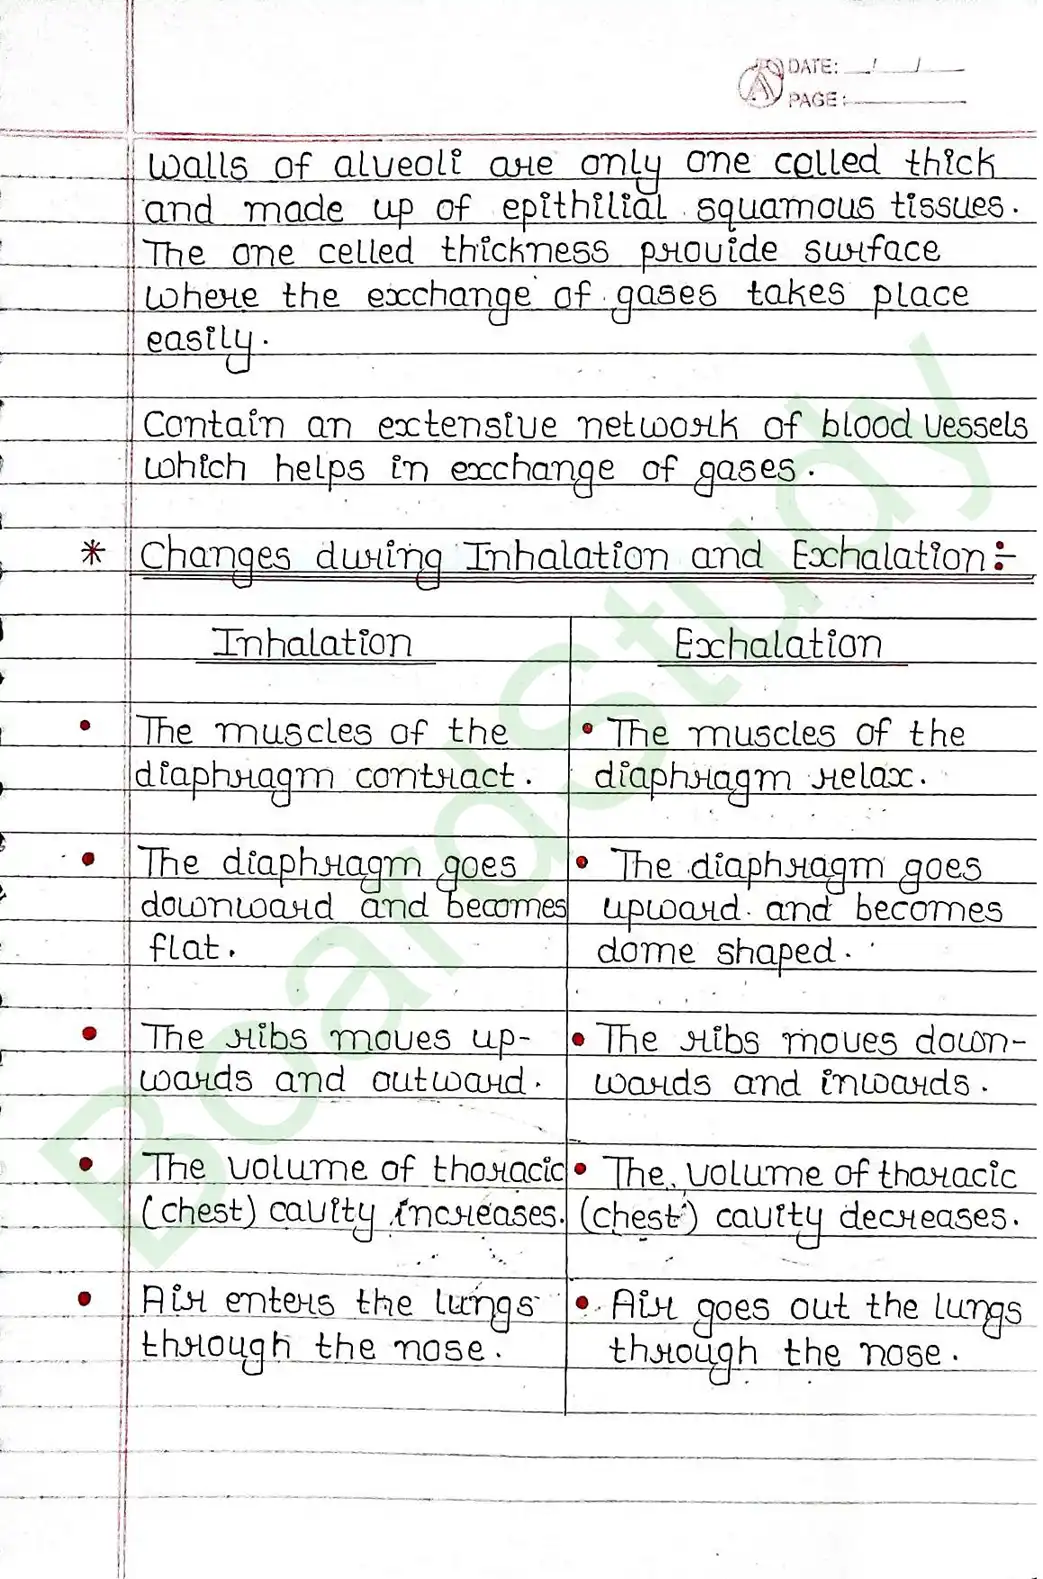 DATE: __/__/__
PAGE:
Walls of alveoli are only one celled thick
and made up of epithilial squamous tissues.
The one celled thickness provide surface
where the exchange of gases takes place
easily.
Contain an extensive network of blood vessels
which helps in exchange of gases.
* Changes during Inhalation and Exhalation:-
Inhalation
• The muscles of the
diaphragm contract.
• The diaphragm goes
downward and becomes
flat.
• The ribs moves up-
wards and outward.
• The volume of thoracic
(chest) cavity increases.
• Air enters the lungs
through the nose.
Exhalation
• The muscles of the
diaphragm relax.
• The diaphragm goes
upward and becomes
dome shaped.
• The ribs moves down-
wards and inwards.
• The volume of thoracic
(chest) cavity decreases.
• Air goes out the lungs
through the nose.
BoardStudy